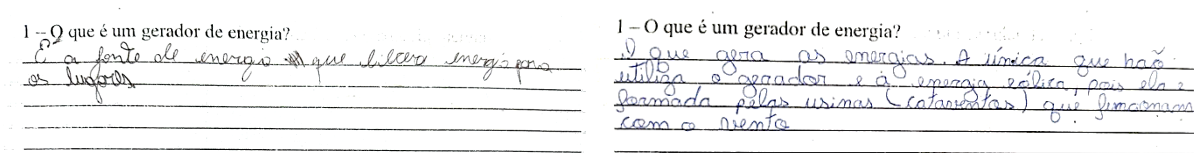 1 – O que é um gerador de energia?
É a fonte de energia que libera energia para
os lugares
1 – O que é um gerador de energia?
O que gera as energias. A única que não
utiliza o gerador e à energia eólica, pois ela é
formada pelas usinas (cataventos) que funcionam
com o vento